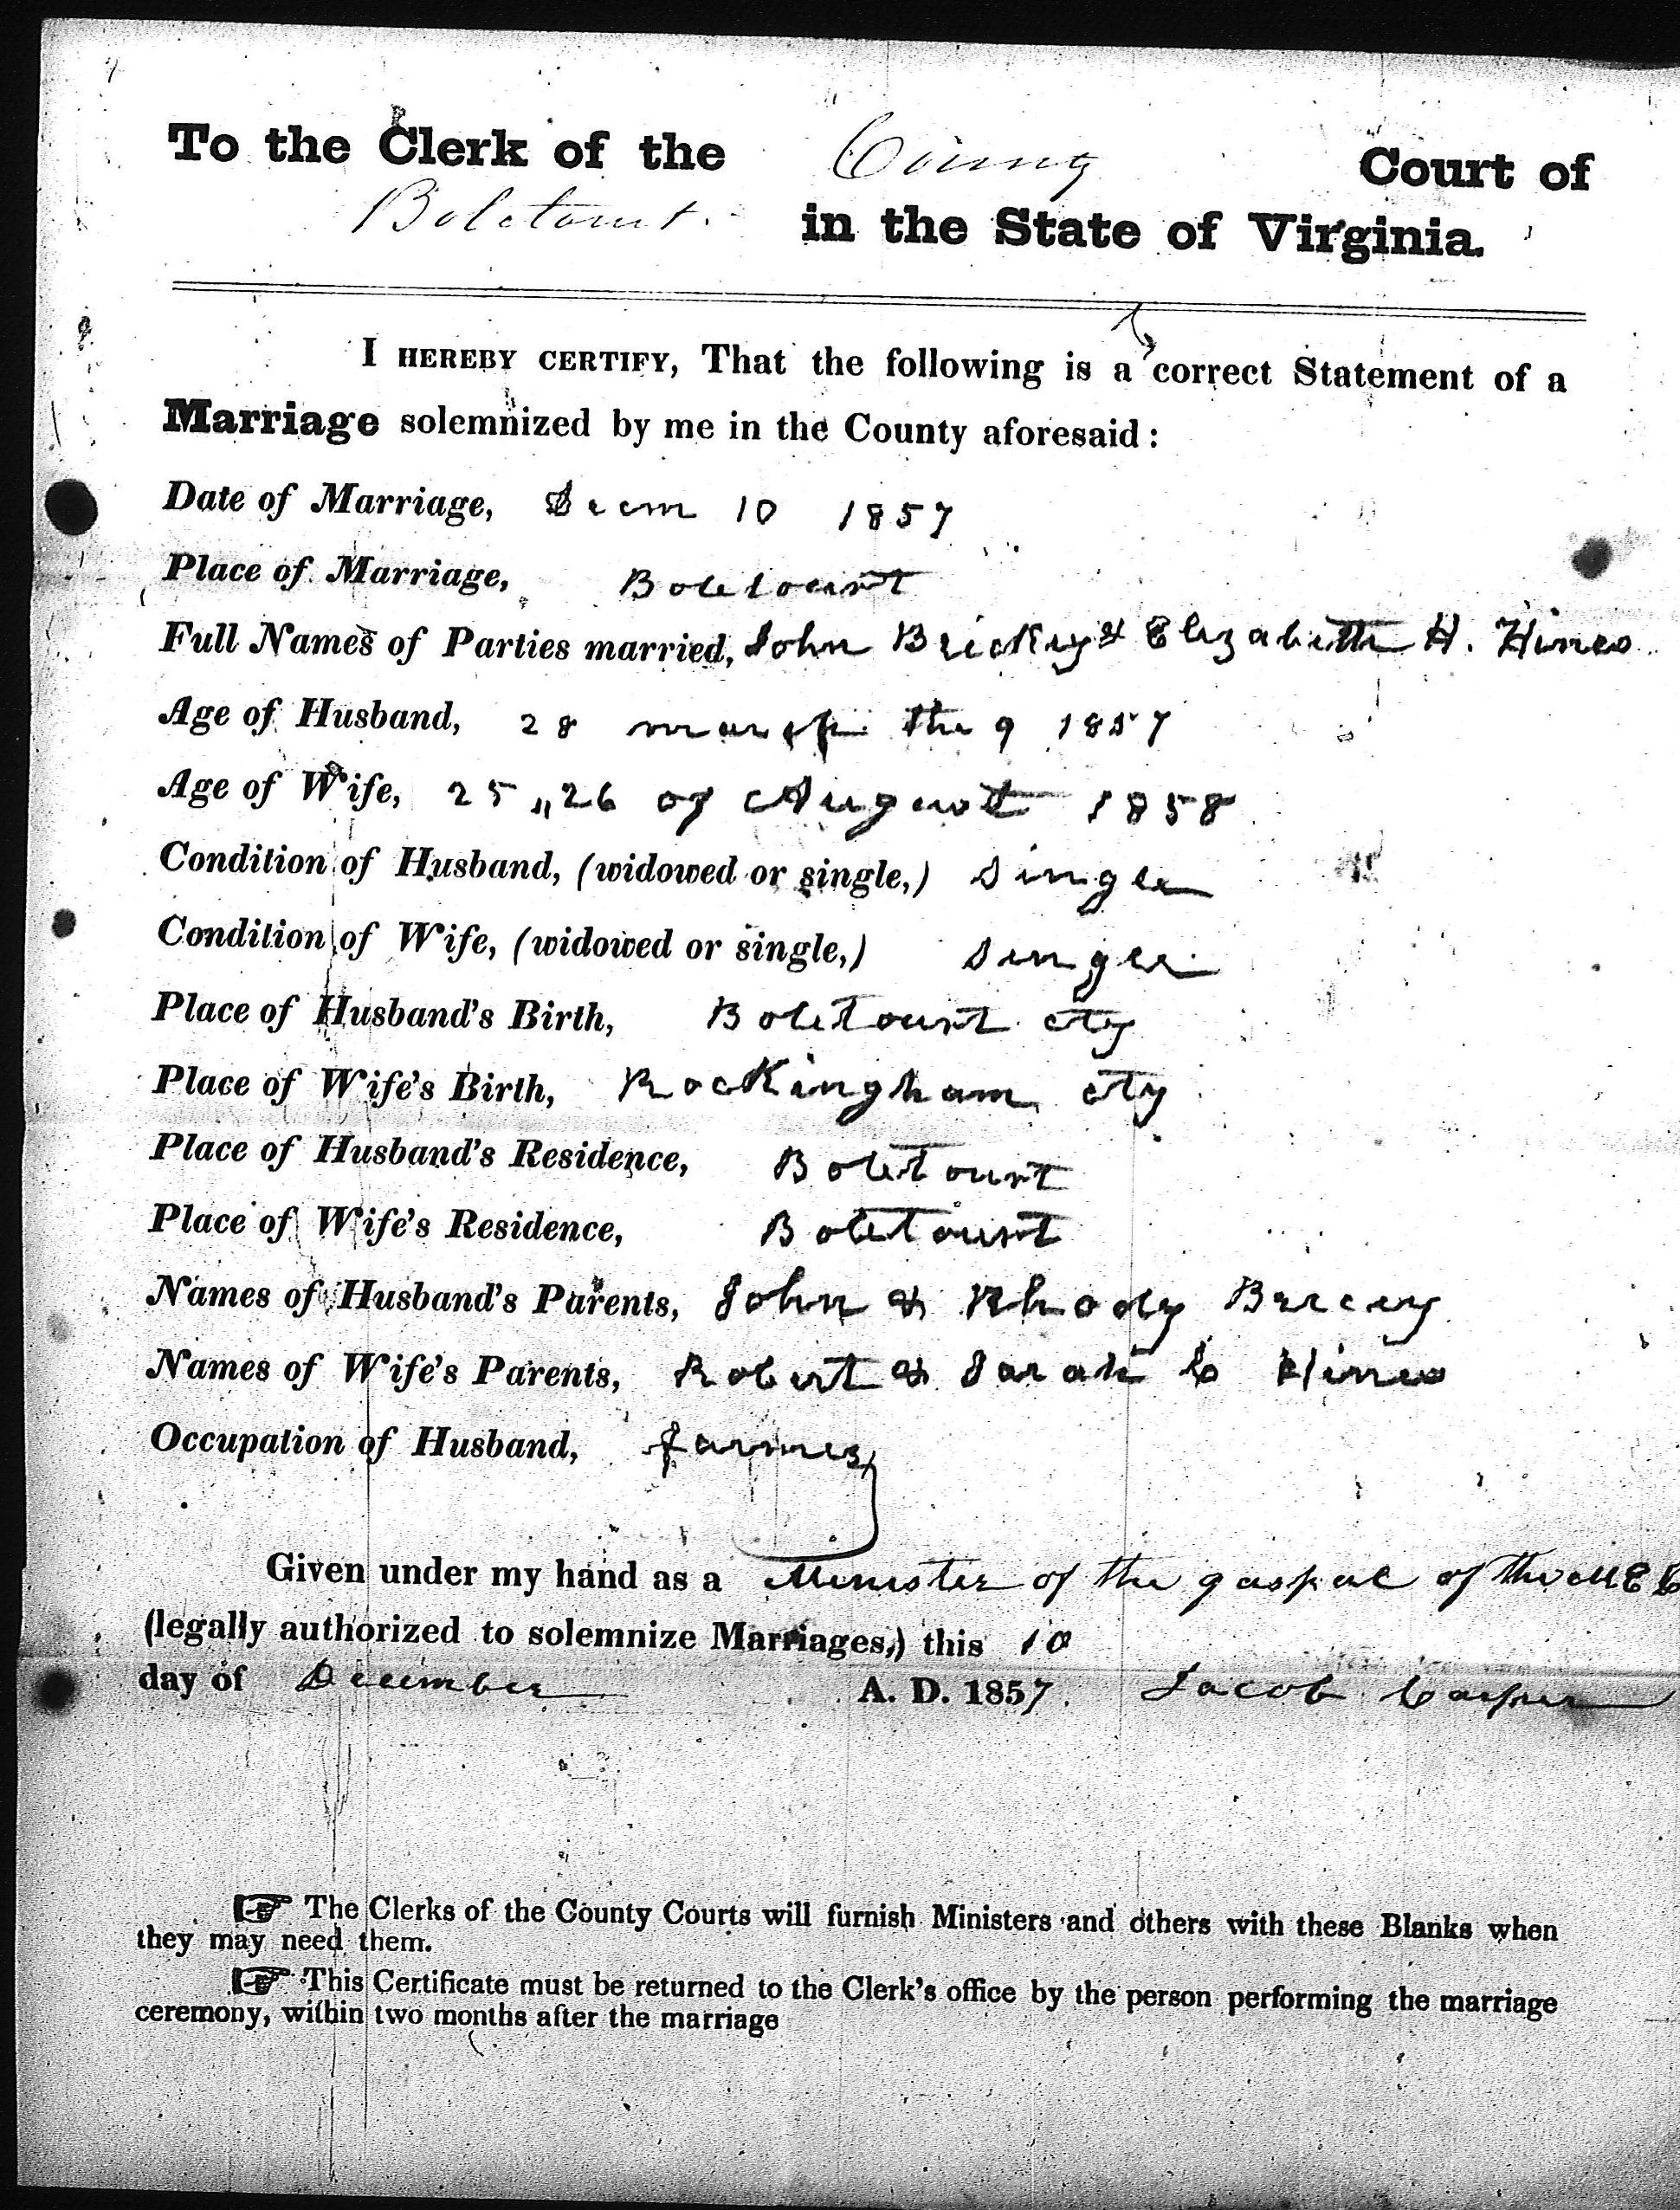 To the Clerk of the County Court of
Botetourt in the State of Virginia.
I HEREBY CERTIFY, That the following is a correct Statement of a
Marriage solemnized by me in the County aforesaid:
Date of Marriage, Decm 10 1857
Place of Marriage, Botetourt
Full Names of Parties married, John Brickey & Elizabeth H. Hines
Age of Husband, 28 march the 9 1857
Age of Wife, 25 ,, 26 of August 1858
Condition of Husband, (widowed or single,) Single
Condition of Wife, (widowed or single,) Single
Place of Husband's Birth, Botetourt cty
Place of Wife's Birth, Rockingham cty
Place of Husband's Residence, Botetourt
Place of Wife's Residence, Botetourt
Names of Husband's Parents, John & Rhody
Names of Wife's Parents, Robert & Sarah C Hines
Occupation of Husband, farmer
Given under my hand as a Minister of the gospel of the M E C
(legally authorized to solemnize Marriages,) this 10
day of December A. D. 1857. Jacob
☞ The Clerks of the County Courts will furnish Ministers and others with these Blanks when
they may need them.
☞ This Certificate must be returned to the Clerk's office by the person performing the marriage
ceremony, within two months after the marriage